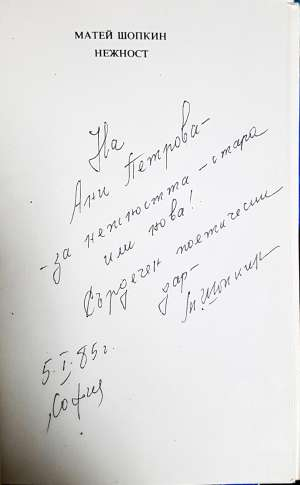 МАТЕЙ ШОПКИН
НЕЖНОСТ
На
Ани Петрова-
-за нежността - стара
или нова!
Сърдечен поетически
дар-
М. Шопкин
5. I. 85 г.
София